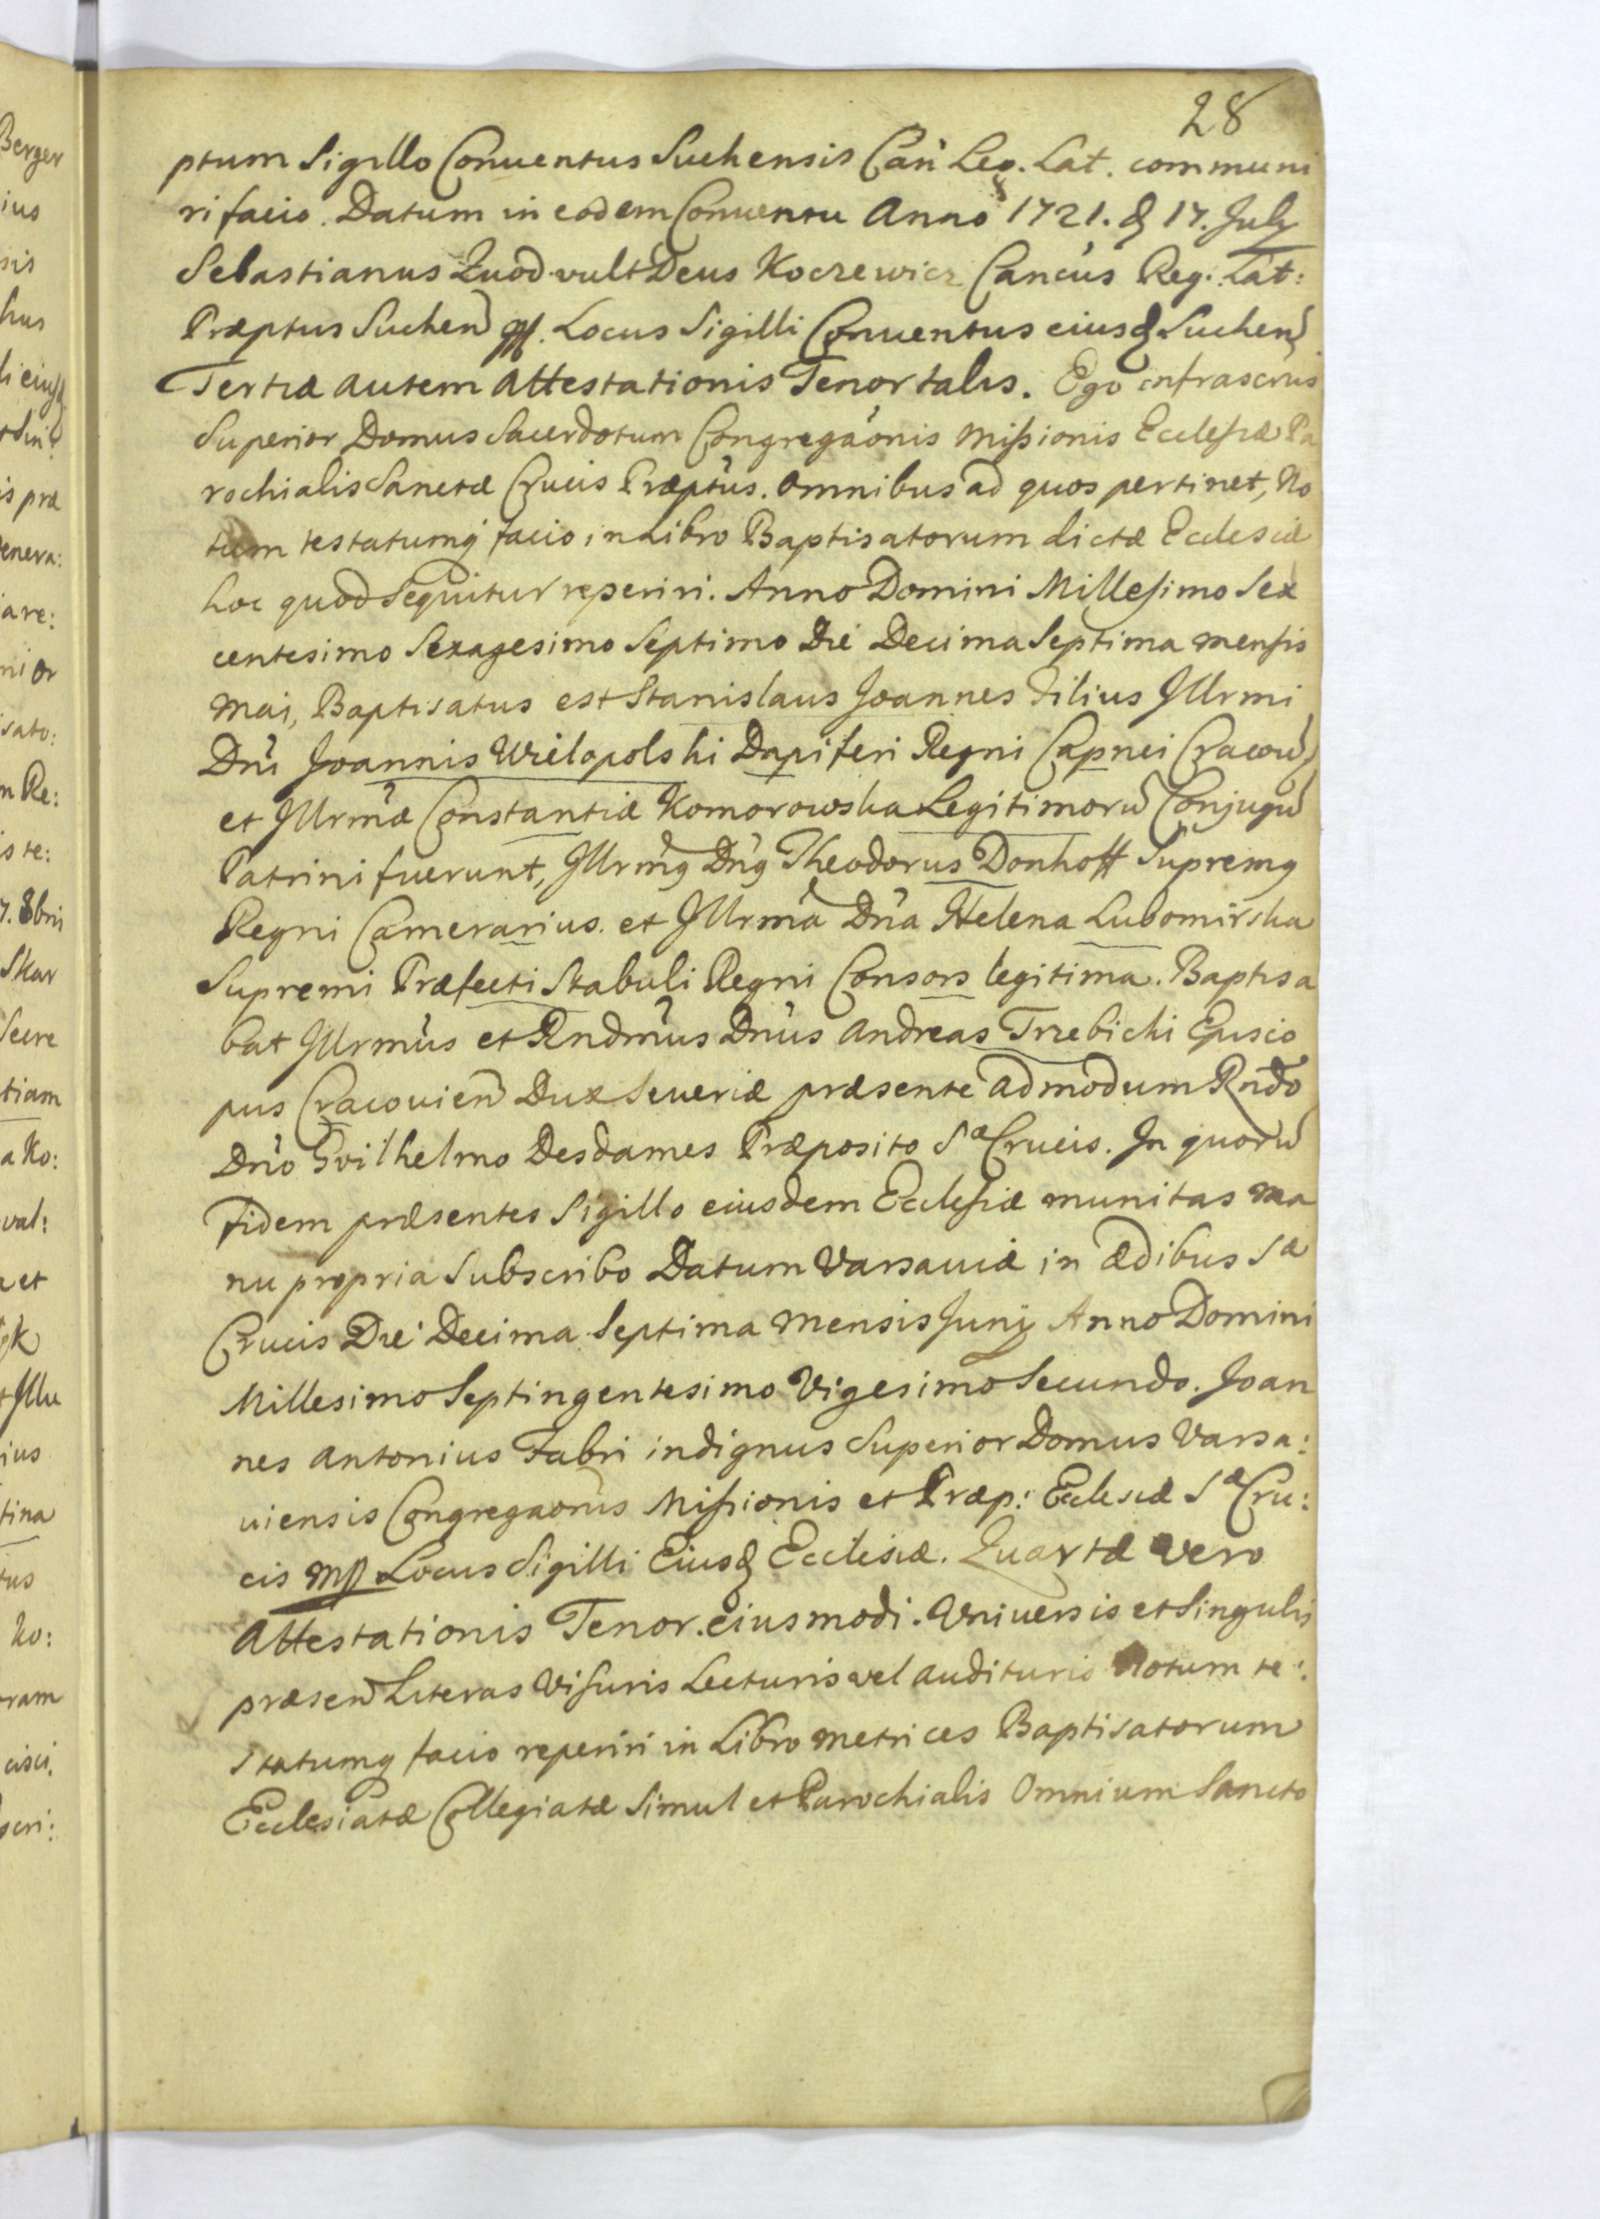 28
ptum Sigillo Conuentus Suchensis Can Reg. Lat. communi
ri facio. Datum in eodem Conuentu Anno 1721. d 17. July
Sebastianus Quod vult Deus Koczewicz Cancus Reg. Lat:
Præptus Suchen mp. Locus Sigilli Conuentus eiusd Suchen
Tertiæ autem Attestationis Tenor talis. Ego infrascrus
Superior Domus Sacerdotum Congregaonis Missionis Ecclesiæ Pa
rochialis Sanctæ Crucis Præptus. Omnibus ad quos pertinet, No
tum testatumq facio in Libro Baptisatorum dictæ Ecclesiæ
hoc quod Sequitur reperiri. Anno Domini Millesimo Sex
centesimo Sexagesimo Septimo Die Decima Septima mensis
Maij, Baptisatus est Stanislaus Joannes Filius Jllrmi
Dni Joannis Wielopolski Dapiferi Regni Capnei Cracou,
et Jllrmæ Constantiæ Komorowska Legitimoru Conjugu
Patrini fuerunt, Jllrmq Dnq Theodorus Donhoff Supremq
Regni Camerarius. et Jllrma Dna Helena Lubomirska
Supremi Præfecti Stabuli Regni Consors legitima. Baptisa
bat Jllrmus et Rndmus Dnus Andreas Trzebicki Episco
pus Cracouien Dux Seueriæ præsente admodum Rndo
Dno Gvilhelmo Desdames Præposito Sæ Crucis. In quoru
Fidem præsentes Sigillo eiusdem Ecclesiæ munitas ma
nu propria Subscribo Datum Varsauiæ in Ædibus Sæ
Crucis Die Decima Septima mensis Junij Anno Domini
Millesimo Septingentesimo Vigesimo Secundo. Joan
nes Antonius Fabri indignus Superior Domus Varsa:
uiensis Congregaonis Missionis et Præp: Ecclesiæ Sæ Cru:
cis mp Locus Sigilli Eiusd Ecclesiæ. Quartæ vero
Attestationis Tenor eiusmodi. Vniuersis et Singulis
præsen Literas Visuris Lecturis vel audituris Notum te:
statumq facio reperiri in Libro metrices Baptisatorum
Ecclesiatæ Collegiatæ Simul et Parochialis Omnium Sancto